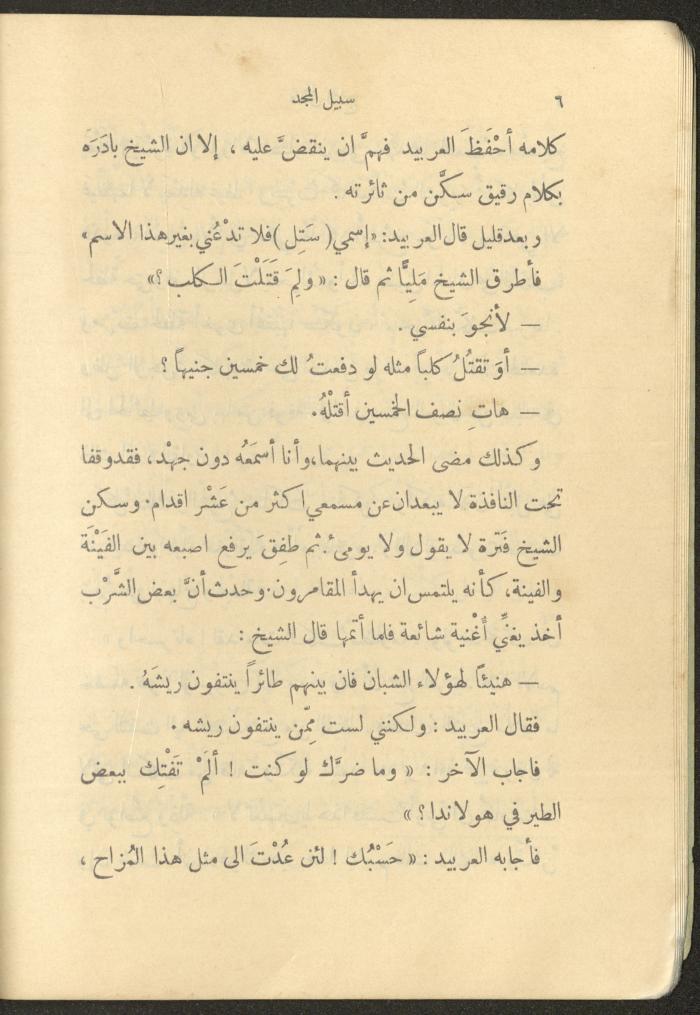 ٦
سبيل المجد
كلامه أحْفَظَ العربيد فهمَّ ان ينقضَّ عليه ، إلا ان الشيخ بادَرَه
بكلام رقيق سكَّن من ثائرته .
وبعد قليل قال العربيد: «إسمي ( سَتِل ) فلا تدْعُني بغير هذا الاسم»
فأطرق الشيخ مَلِيًّا ثم قال : « ولِمَ قَتَلْتَ الكلب ؟»
— لأنجوَ بنفسي .
— أوَ تقتُلُ كلباً مثله لو دفعتُ لك خمسين جنيهاً ؟
— هاتِ نصف الخمسين أقتلْهُ.
وكذلك مضى الحديث بينهما، وأنا أسمَعُه دون جهْد، فقد وقفا
تحت النافذة لا يبعدان عن مسمعي اكثر من عَشْر اقدام. وسكن
الشيخ فَتَرة لا يقول ولا يومىء. ثم طفِقَ يرفع اصبعه بين الفَيْنَة
والفينة، كأنه يلتمس ان يهدأ المقامرون. وحدث أنَّ بعض الشَّرْب
أخذ يغنِّي أُغْنية شائعة فلما أتمها قال الشيخ :
— هنيئاً لهؤلاء الشبان فان بينهم طائراً ينتفون ريشَهُ .
فقال العربيد : ولكنني لست مِمَّن ينتفون ريشه .
فاجاب الآخر : « وما ضرَّك لو كنت ! ألَمْ تَفْتِك ببعض
الطير في هولاندا ؟ »
فأجابه العربيد : « حَسْبُك ! لئن عُدْتَ الى مثل هذا المُزاح ،